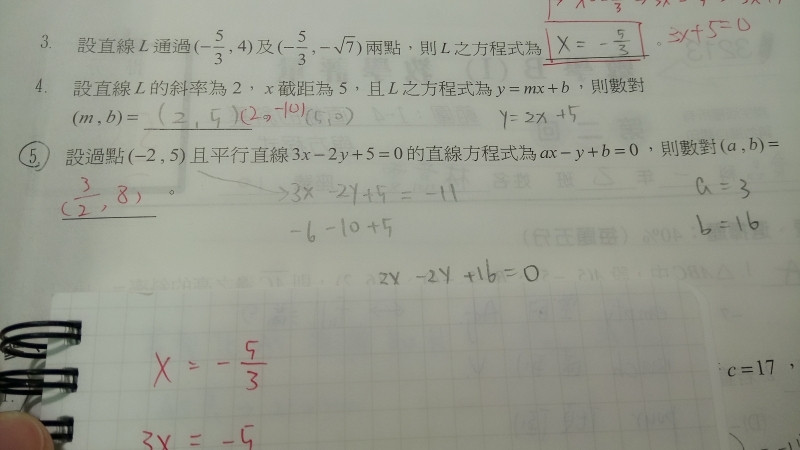 3. 設直線 L 通過 (-5/3, 4) 及 (-5/3, -√7) 兩點，則 L 之方程式為 X = -5/3 。 3x+5=0
4. 設直線 L 的斜率為 2，x 截距為 5，且 L 之方程式為 y = mx + b，則數對
(m, b) = (2, 5) (2, -10) (5, 0) y = 2x + 5
5. 設過點 (-2, 5) 且平行直線 3x - 2y + 5 = 0 的直線方程式為 ax - y + b = 0，則數對 (a, b) =
(3/2, 8) 。 3x - 2y + 5 = -11 a = 3
-6 - 10 + 5 b = 16
2x - 2y + 16 = 0
X = - 5/3
c = 17，
3x = -5